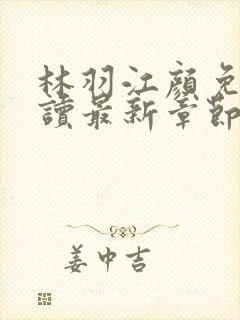 林羽江顏免
讀最新章節
姜中吉